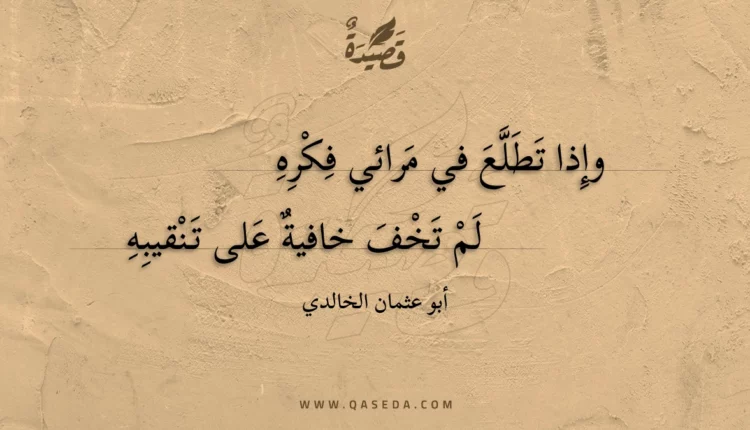 قَصِيدَةٌ
وإِذا تَطَلَّعَ في مَرائي فِكْرِهِ
لَمْ تَخْفَ خافيةٌ عَلى تَنْقيبِهِ
أبو عثمان الخالدي
WWW.QASEDA.COM